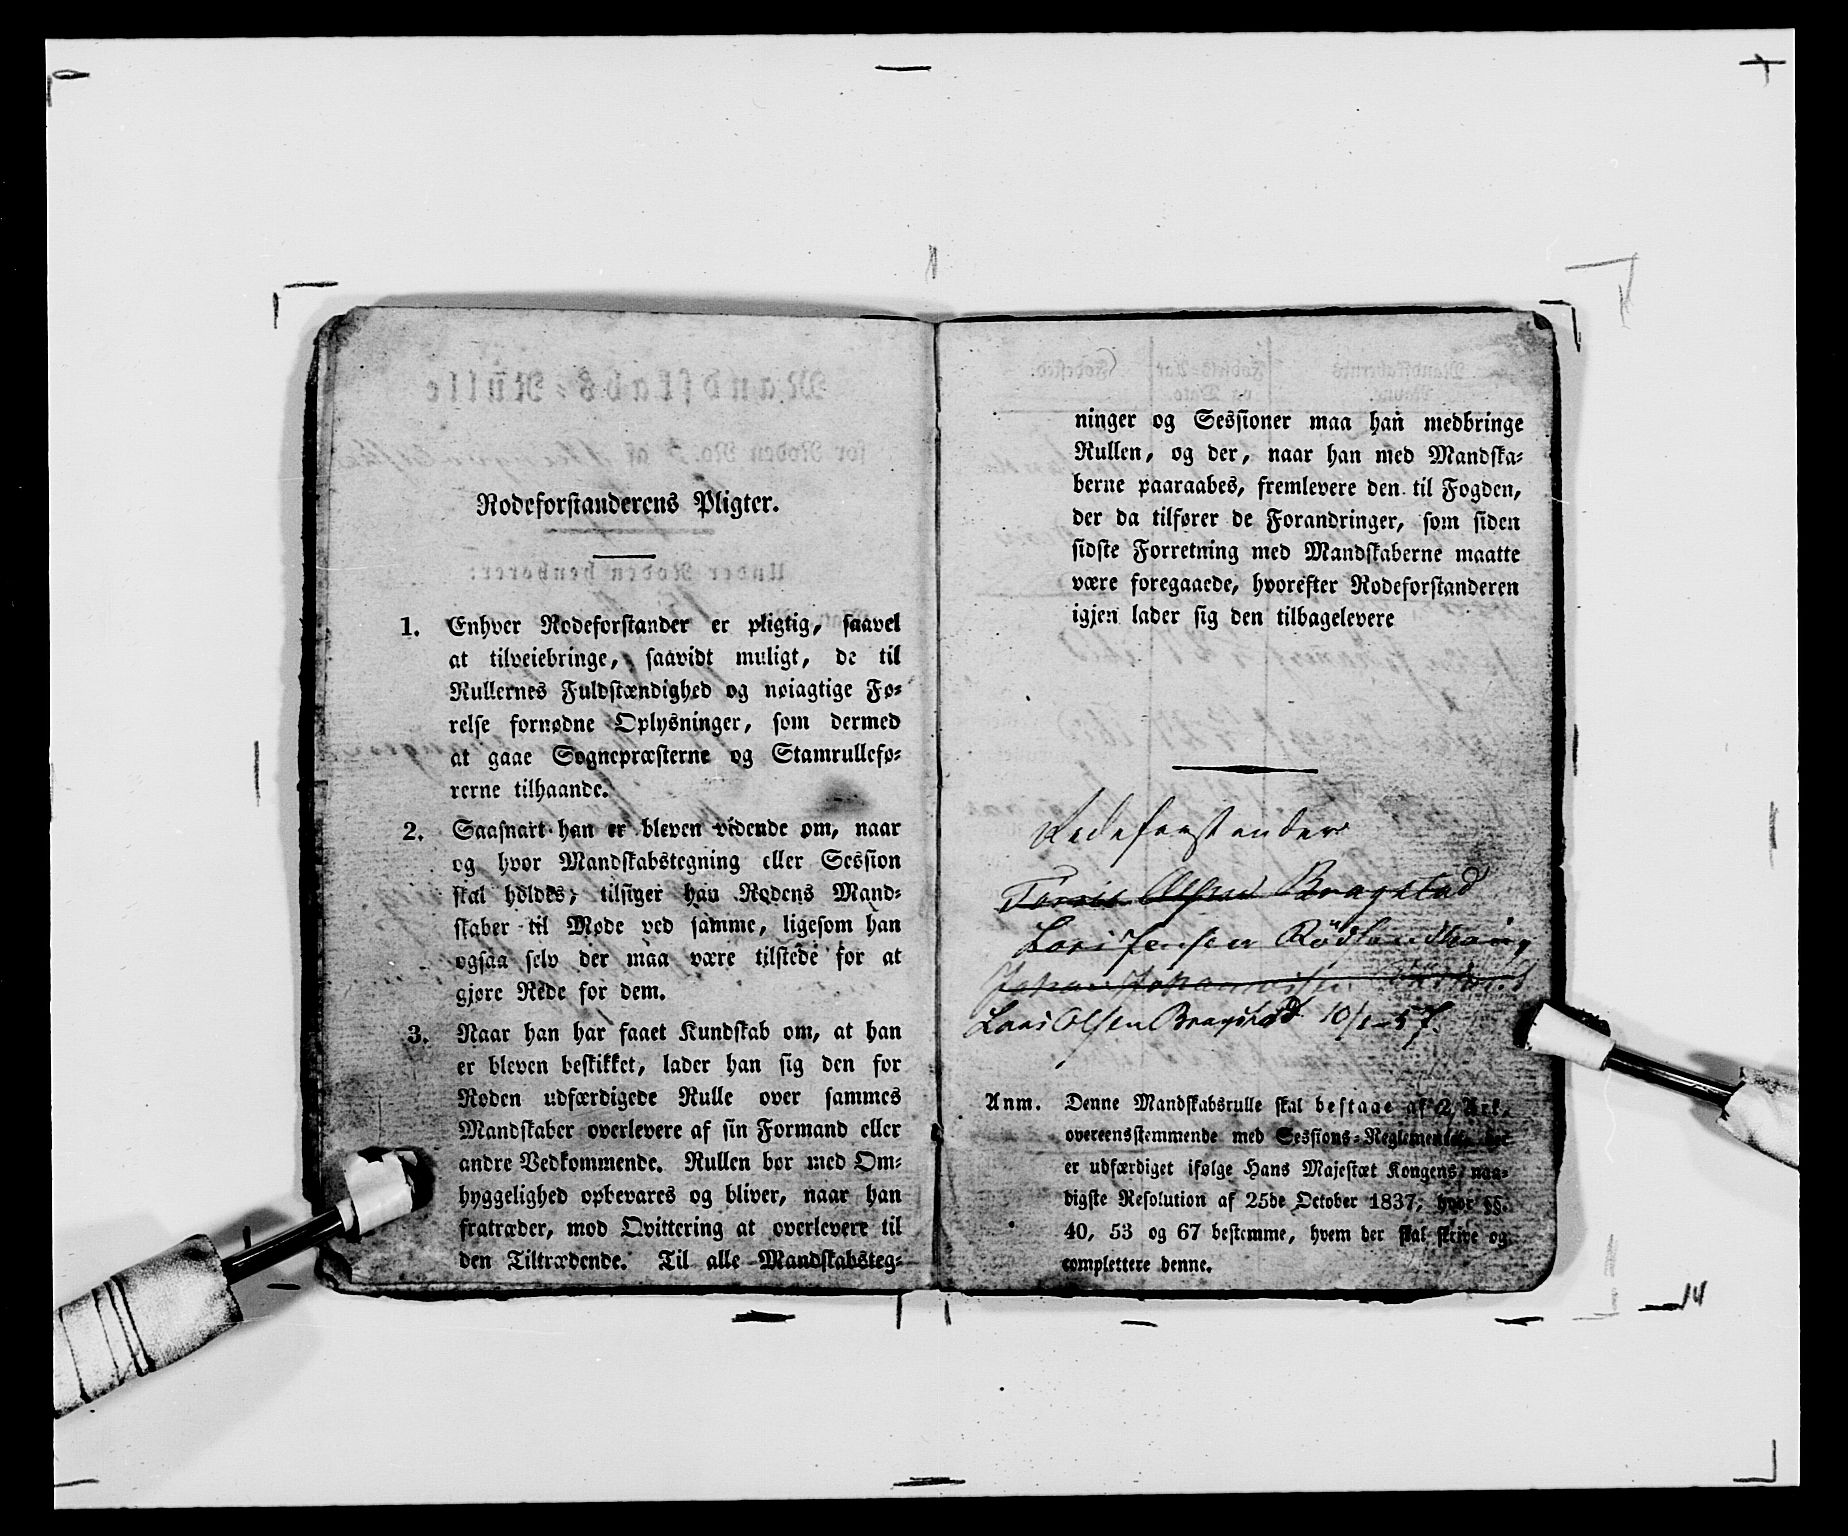 Rodeforstanderens Pligter.
1. Enhver Rodeforstander er pligtig, saavel
at tilveiebringe, saavidt muligt, de til
Rullernes Fuldstændighed og nøiagtige Fø-
relse fornødne Oplysninger, som dermed
at gaae Sognepræsterne og Stamrullefø-
rerne tilhaande.
2. Saasnart han er bleven vidende om, naar
og hvor Mandskabstegning eller Session
skal holdes, tilsiger han Rodens Mand-
skaber til Møde ved samme, ligesom han
ogsaa selv der maa være tilstede for at
gjøre Rede for dem.
3. Naar han har faaet Kundskab om, at han
er bleven beskikket, lader han sig den for
Roden udfærdigede Rulle over sammes
Mandskaber overlevere af sin Formand eller
andre Vedkommende. Rullen bør med Om-
hyggelighed opbevares og bliver, naar han
fratræder, mod Qvittering at overlevere til
den Tiltrædende. Til alle Mandskabsteg-
ninger og Sessioner maa han medbringe
Rullen, og der, naar han med Mandska-
berne paaraabes, fremlevere den til Fogden,
der da tilfører de Forandringer, som siden
sidste Forretning med Mandskaberne maatte
være foregaaede, hvorefter Rodeforstanderen
igjen lader sig den tilbagelevere
Rodeforstander
Olsen Bragstad
Lars Jensen
Johan Johannissen
Lars Olsen Bragstad 10/1-57.
Anm. Denne Mandskabsrulle skal bestaae af 2 Ark,
overeensstemmende med Sessions-Reglementet, der
er udfærdiget ifølge Hans Majestæt Kongens naa-
digste Resolution af 25de October 1837, hvor §§.
40, 53 og 67 bestemme, hvem der skal skrive og
complettere denne.
14